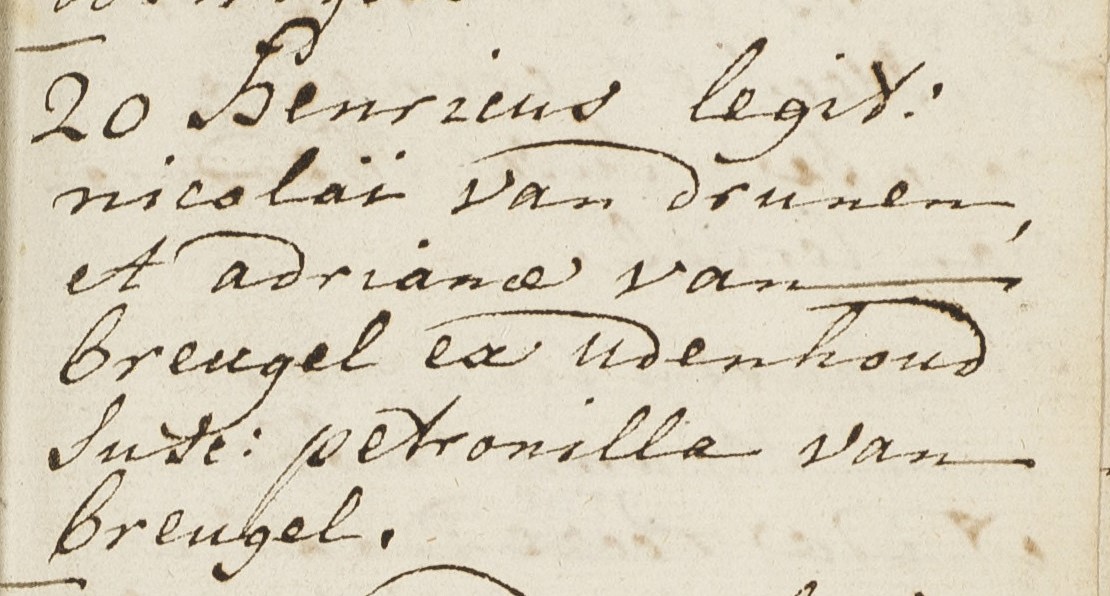 20 Henricus legit:
nicolaï van drunen,
et adrianæ van
breugel ex udenhoud
Susc: petronilla van
breugel.